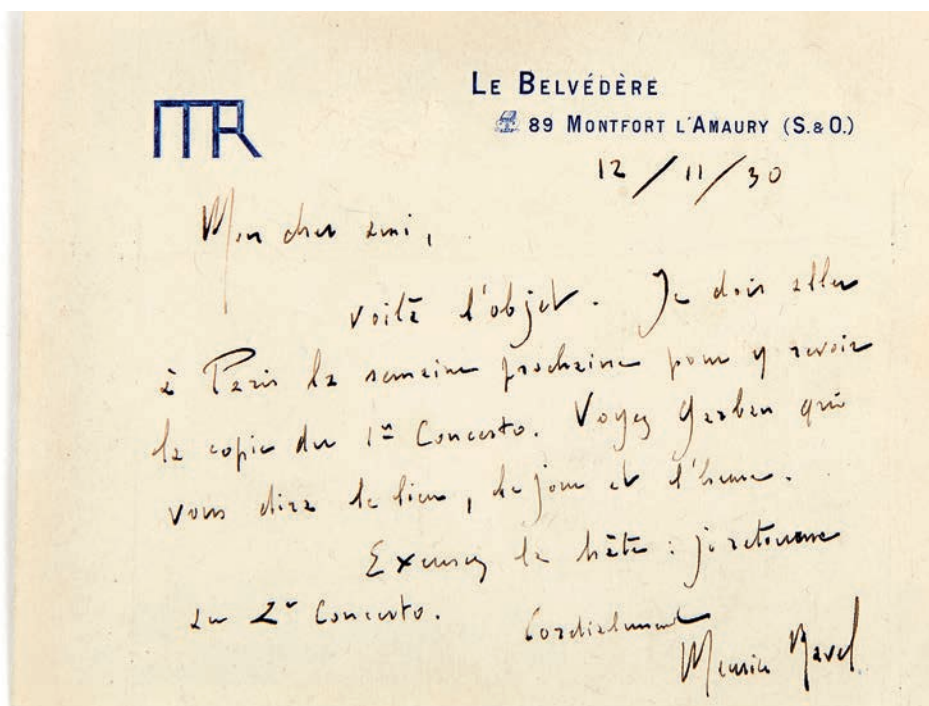 LE BELVÉDÈRE
MR
89 MONTFORT L'AMAURY (S.&O.)
12/11/30
Mon cher ami,
voilà l'objet. Je dois aller
à Paris la semaine prochaine pour y revoir
la copie du 1er Concerto. Voyez Garban qui
vous dira le lieu, le jour et l'heure.
Excusez la hâte : je retourne
au 2e Concerto.
Cordialement
Maurice Ravel